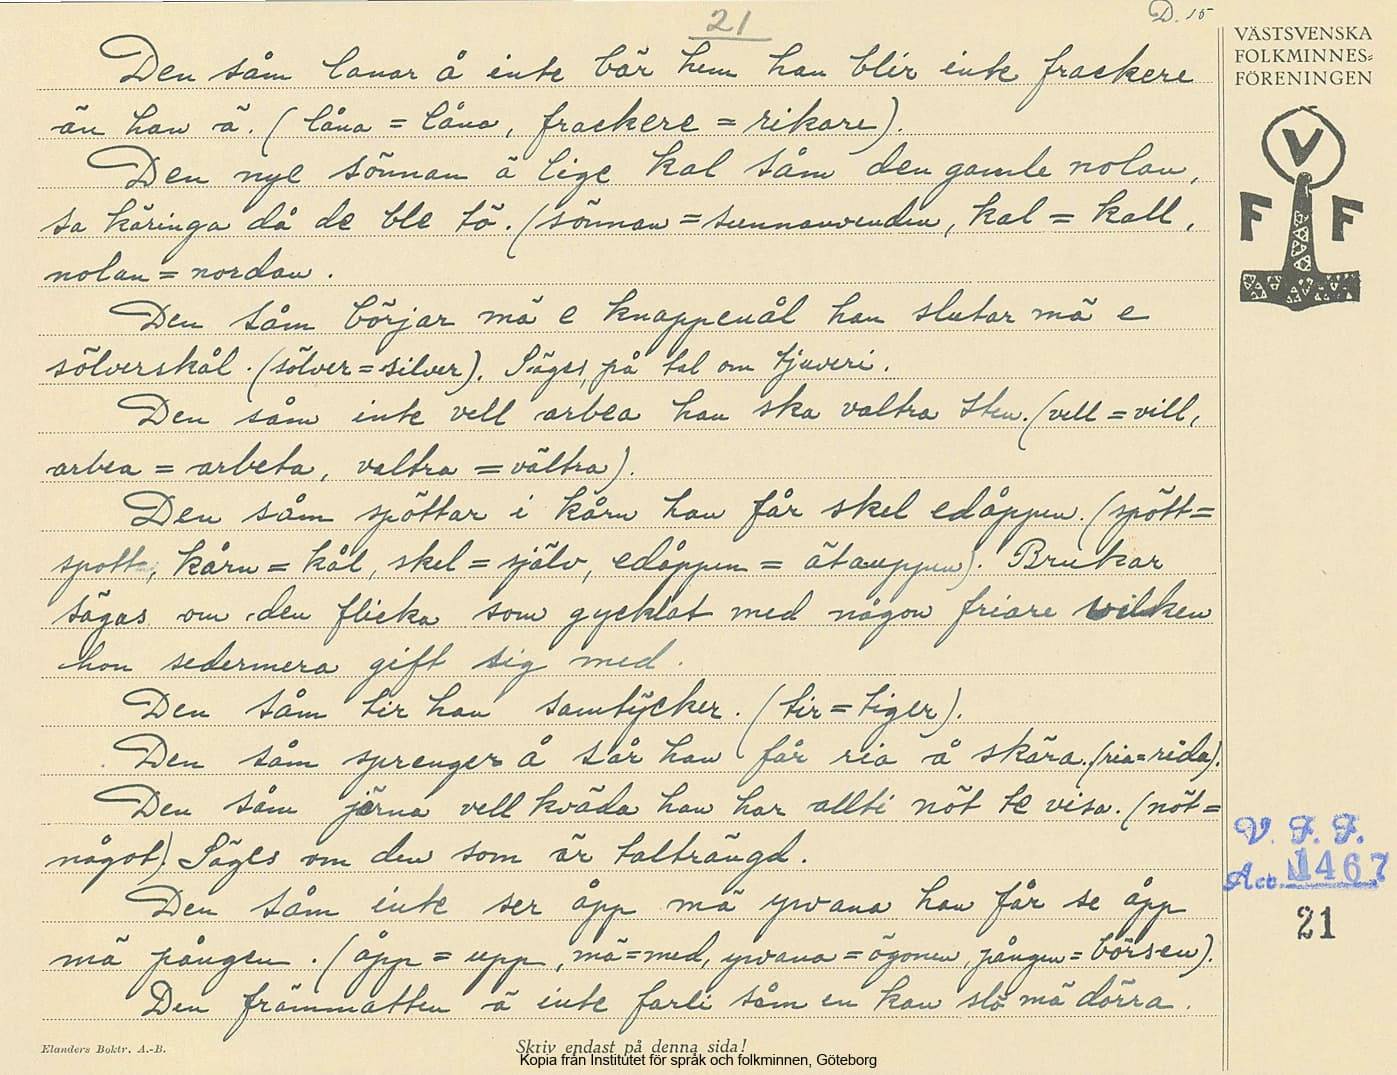 21
D. 15
VÄSTSVENSKA
FOLKMINNES-
FÖRENINGEN
V
F F
Den såm lanar å inte bär hem han blir inte frackere
än han ä. (låna = låna, frackere = rikare).
Den nye sönnan ä lige kal såm den gamle nolan,
sa käringa då de ble tö. (sönnan = sunnanvinden, kal = kall,
nolan = nordan.
Den såm börjar mä e knappenål han slutar mä e
sölverskål. (sölver = silver). Säges på tal om tjuveri.
Den såm inte vell arbea han ska valtra sten. (vell = vill,
arbea = arbeta, valtra = vältra).
Den såm spöttar i kårn han får skel edåppen. (spött =
spott, kårn = kål, skel = själv, edåppen = ätauppen). Brukar
sägas om den flicka som gycklat med någon friare vilken
hon sedermera gift sig med.
Den såm tir han samtycker. (tir = tiger).
Den såm sprenger å slår han får ria å skära. (ria = rida).
Den såm järna vell kväda han har allti nöt te visa. (nöt =
något). Säges om den som är talträngd.
Den såm inte ser åpp mä yvana han får se åpp
mä pången. (åpp = upp, mä = med, yvana = ögonen, pången = börsen).
Den främmatten ä inte farli såm en kan slå mä dörra.
V. F. F.
Acc. 1467
21
Elanders Boktr. A.-B.
Skriv endast på denna sida!
Kopia från Institutet för språk och folkminnen, Göteborg